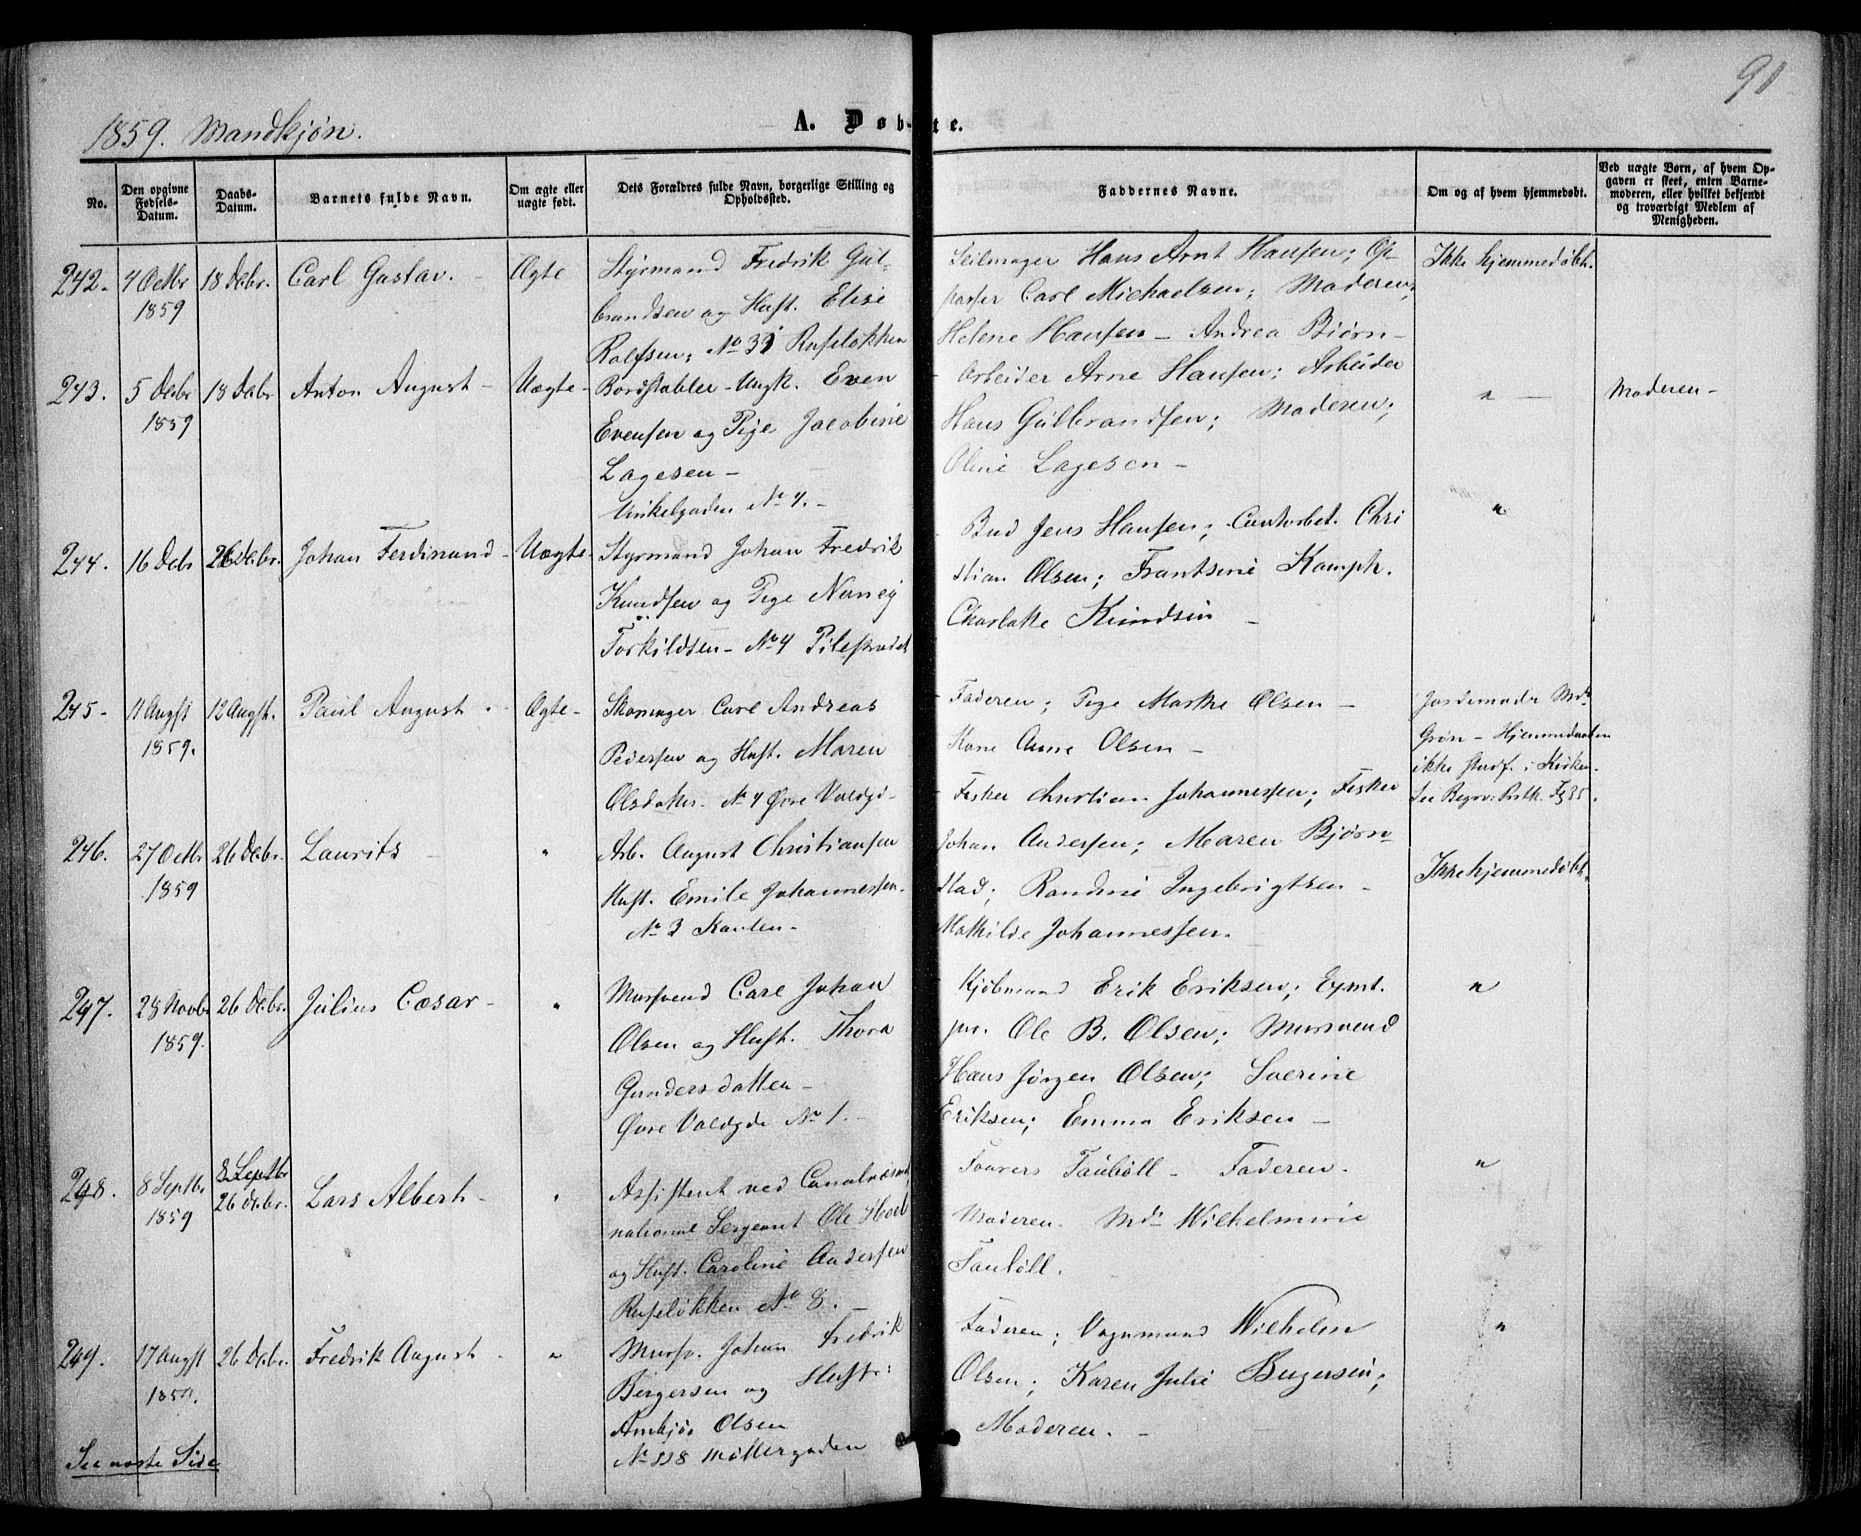 90
1859. Mandkjøn.
A. Døb-te.
No.
Den opgivne Fødsels-Datum.
Daabs-Datum.
Barnets fulde Navn.
Om ægte eller uægte født.
Dets Forældres fulde Navn, borgerlige Stilling og Opholdssted.
Faddernes Navne.
Om og af hvem hjemmedøbt.
Ved uægte Børn, af hvem Opgaven er skeet, enten Barnemoderen, eller hvilket bekjendt og troværdigt Medlem af Menigheden.
242. 4 Octbr 1859 18 Debr. Carl Gustav. Ægte
Styrmand Fredrik Gul-
brandsen og Hust. Elise
Rolfsen; No 33 Ruseløkken
Seilmager Hans Arnt Hansen; Op-
passer Carl Michaelsen; Moderen;
Helene Hansen - Andrea Biørn-
Ikke hjemmedøbt.
243. 5 Debr 1859 18 Debr Anton August - Uægte -
Bordstabler - Ungk. Even
Evensen og Pige Jacobine
Lagesen -
Vinkelgaden No 4. -
Arbeider Arne Hansen; Arbeider
Hans Gulbrandsen; Moderen;
Oline Lagesen -
" -
Moderen -
244. 16 Debr 26 Debr. Johan Ferdinand - Uægte -
Styrmand Johan Fredrik
Knudsen og Pige Nancy
Torkildsen - No 4 Pilestrædet
Bud Jens Hansen; Contorbet. Chri
stian Olsen; Frantsine Kamph.
Charlotte Knudsen -
"
245 - 11 Augst 1859. 12 Augst. Paul August - Ægte -
Skomager Carl Andreas
Pedersen og Hust. Maren
Olsdatter. No 4 Øvre Voldgd -
Faderen; Pige Marthe Olsen -
Kone Anne Olsen -
Jordemoder Md
Grøn - Hjemmedaaben
ikke stadf. i Kirken.
See Begrv: Prtk. Fg 35.
246. 27 Octbr 1859 26 Debr. Laurits - "
Arb. August Christiansen
Hust. Emilie Johannessen.
No 3 Kanten -
Fisker Christian Johannessen; Fisker
Johan Andersen; Maren Bjørn
stad; Randine Ingebrigtsen -
Mathilde Johannessen.
Ikke hjemmedøbt.
247. 28 Novbr 1859. 26 Debr. Julius Cæsar - "
Mursvend Carl Johan
Olsen og Hust. Thora
Gundersdatter -
Øvre Voldgde No 1. -
Kjøbmand Erik Eriksen; Exmt.
jur. Ole B. Olsen; Mursvend
Hans Jørgen Olsen; Severine
Eriksen; Emma Eriksen -
"
248. 8 Septbr 1859 8 Septbr 26 Debr. Lars Albert - "
Assistent ved Canalvæsnet,
national Sergeant Ole Hoel
og Hust. Caroline Andersen
Ruseløkken No 8. -
Taubøll - Faderen.
Moderen. Md Wilhelmine
Taubøll.
"
249. 17 Augst 1859. 26 Debr. Fredrik August - "
Mursv. Johan Fredrik
Birgersen og Hustr:
Olsen
No 118 Møllergaden
Faderen; Vognmand Wilhelm
Olsen; Karen Julie Birgersen;
Moderen. -
"
See næste Side